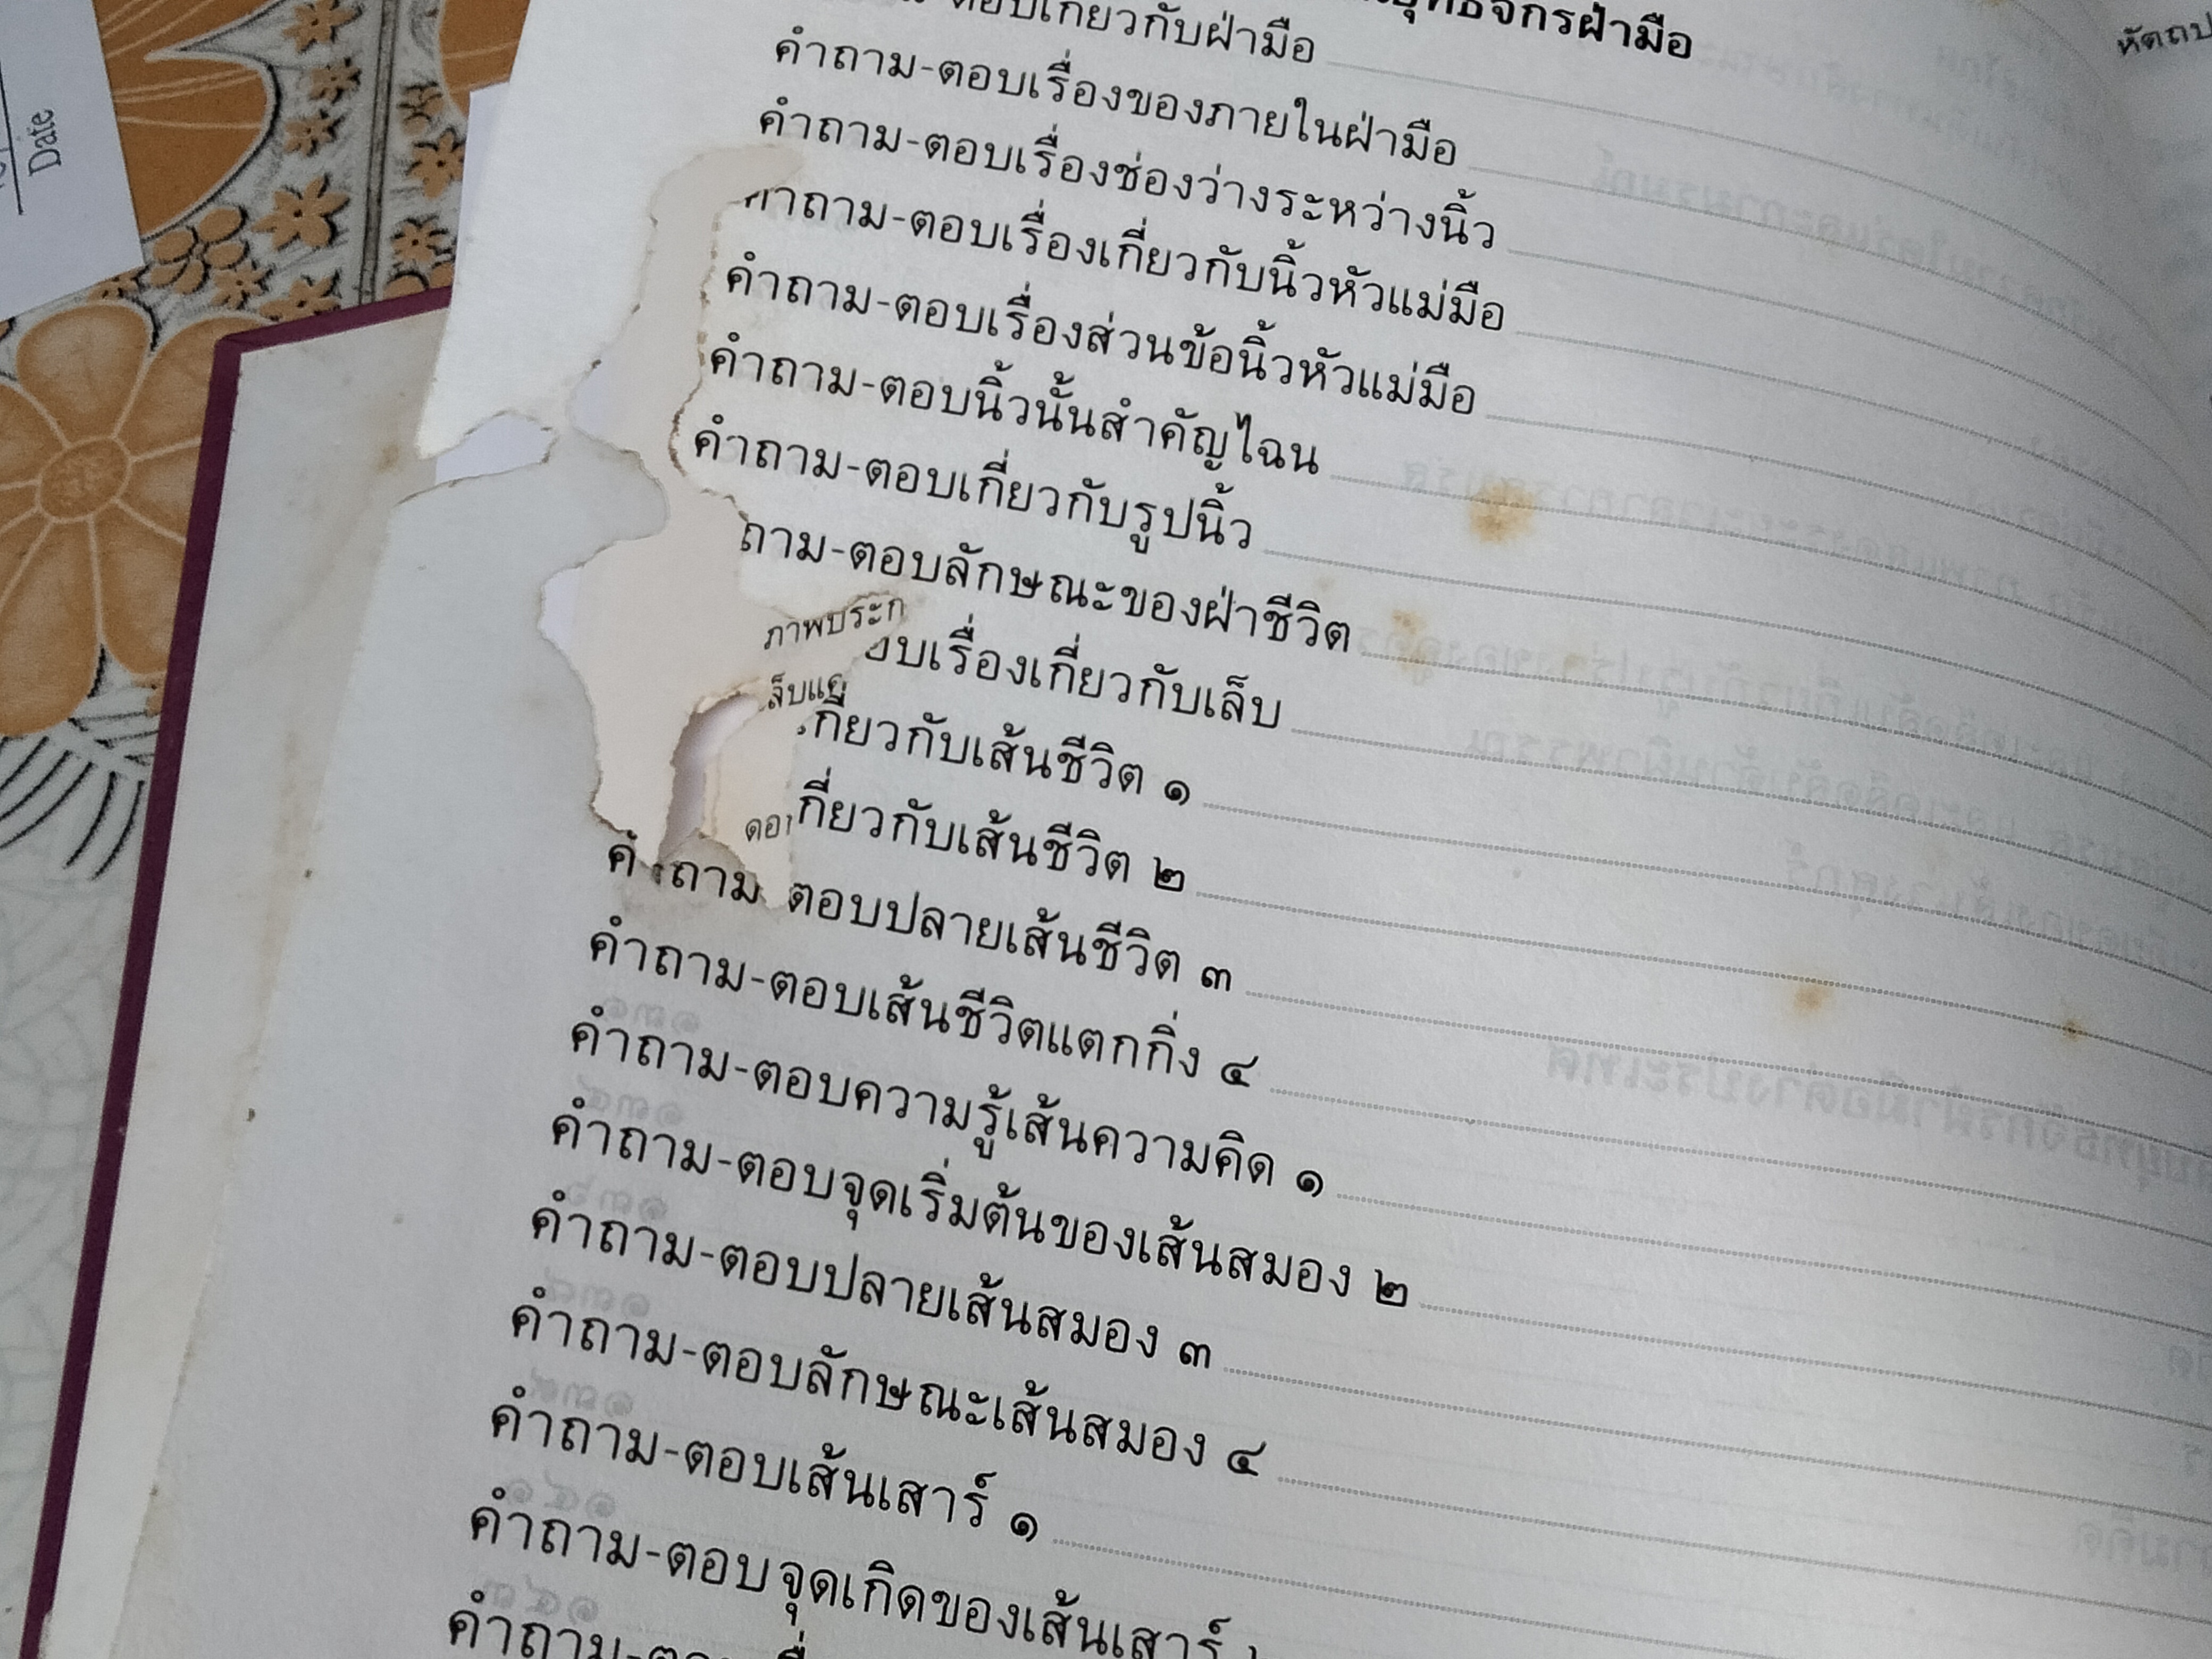 ยุทธจักรฝ่ามือ
ตอบเกี่ยวกับฝ่ามือ
คำถาม-ตอบเรื่องของภายในฝ่ามือ
คำถาม-ตอบเรื่องช่องว่างระหว่างนิ้ว
คำถาม-ตอบเรื่องเกี่ยวกับนิ้วหัวแม่มือ
คำถาม-ตอบเรื่องส่วนข้อนิ้วหัวแม่มือ
คำถาม-ตอบนิ้วนั้นสำคัญไฉน
คำถาม-ตอบเกี่ยวกับรูปนิ้ว
ถาม-ตอบลักษณะของฝ่าชีวิต
ภาพประก
อบเรื่องเกี่ยวกับเล็บ
เกี่ยวกับเส้นชีวิต ๑
เกี่ยวกับเส้นชีวิต ๒
คำถาม ตอบปลายเส้นชีวิต ๓
คำถาม-ตอบเส้นชีวิตแตกกิ่ง ๔
คำถาม-ตอบความรู้เส้นความคิด ๑
คำถาม-ตอบจุดเริ่มต้นของเส้นสมอง ๒
คำถาม-ตอบปลายเส้นสมอง ๓
คำถาม-ตอบลักษณะเส้นสมอง ๔
คำถาม-ตอบเส้นเสาร์ ๑
คำถาม-ตอบจุดเกิดของเส้นเสาร์
คำถาม-ตอบ
Date